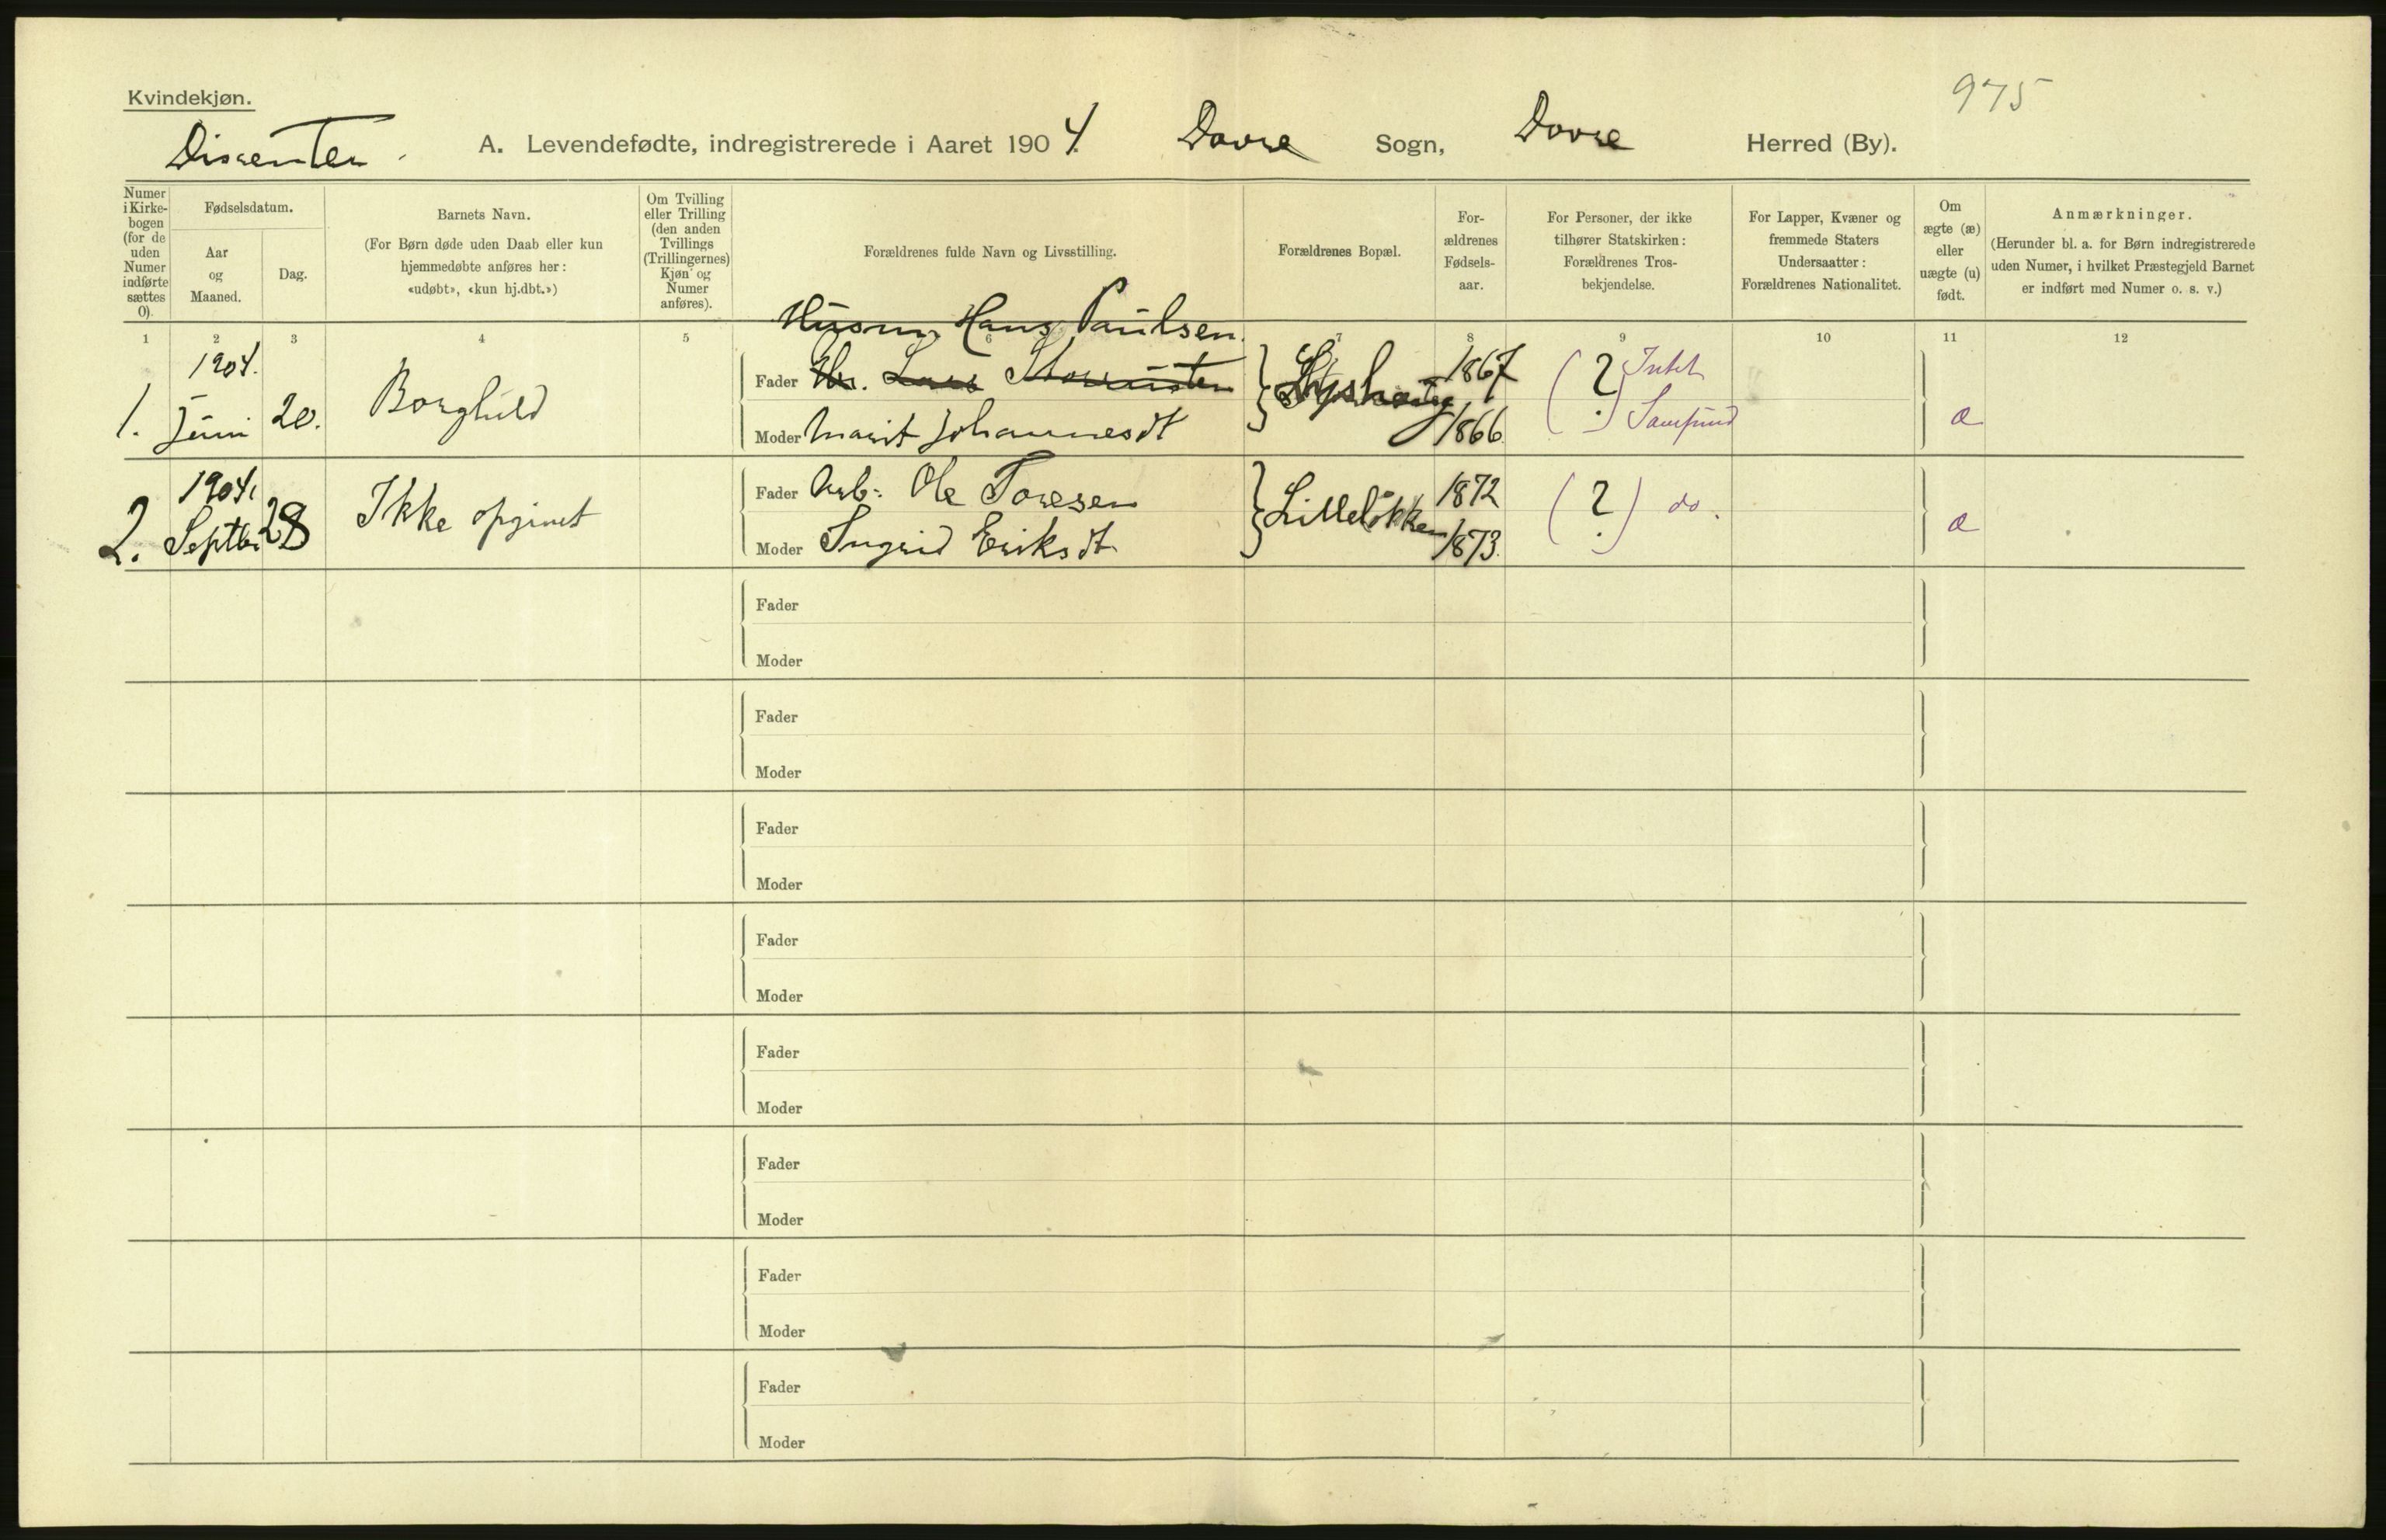 Kvindekjøn.
975
Dissenter.
A. Levendefødte, indregistrerede i Aaret 1904. Dovre Sogn, Dovre Herred (By).
Numer i Kirke-bogen (for de uden Numer indførte sættes 0).
Fødselsdatum.
Aar og Maaned.
Dag.
Barnets Navn.
(For Børn døde uden Daab eller kun
hjemmedøbte anføres her:
«udøbt», «kun hj.dbt.»)
Om Tvilling
eller Trilling
(den anden
Tvillings
(Trillingernes)
Kjøn og
Numer
anføres).
Forældrenes fulde Navn og Livsstilling.
Forældrenes Bopæl.
For-
ældrenes
Fødsels-
aar.
For Personer, der ikke
tilhører Statskirken:
Forældrenes Tros-
bekjendelse.
For Lapper, Kvæner og
fremmede Staters
Undersaatter:
Forældrenes Nationalitet.
Om
ægte (æ)
eller
uægte (u)
født.
Anmærkninger.
(Herunder bl. a. for Børn indregistrerede
uden Numer, i hvilket Præstegjeld Barnet
er indført med Numer o. s. v.)
1 2 3 4 5 6 7 8 9 10 11 12
Husm. Hans Paulsen
1. 1904. Juni 20. Borghild
Fader Lars 1867 (?) Intet
Moder Marit Johannesdt 1866 Samfund æ
2. 1904. Septbr 28 Ikke opgivet
Fader Arb. Ole Toresen Lilleløkken 1872 (?) do.
Moder Ingrid Eriksdt 1873. æ
Fader
Moder
Fader
Moder
Fader
Moder
Fader
Moder
Fader
Moder
Fader
Moder
Fader
Moder
Fader
Moder